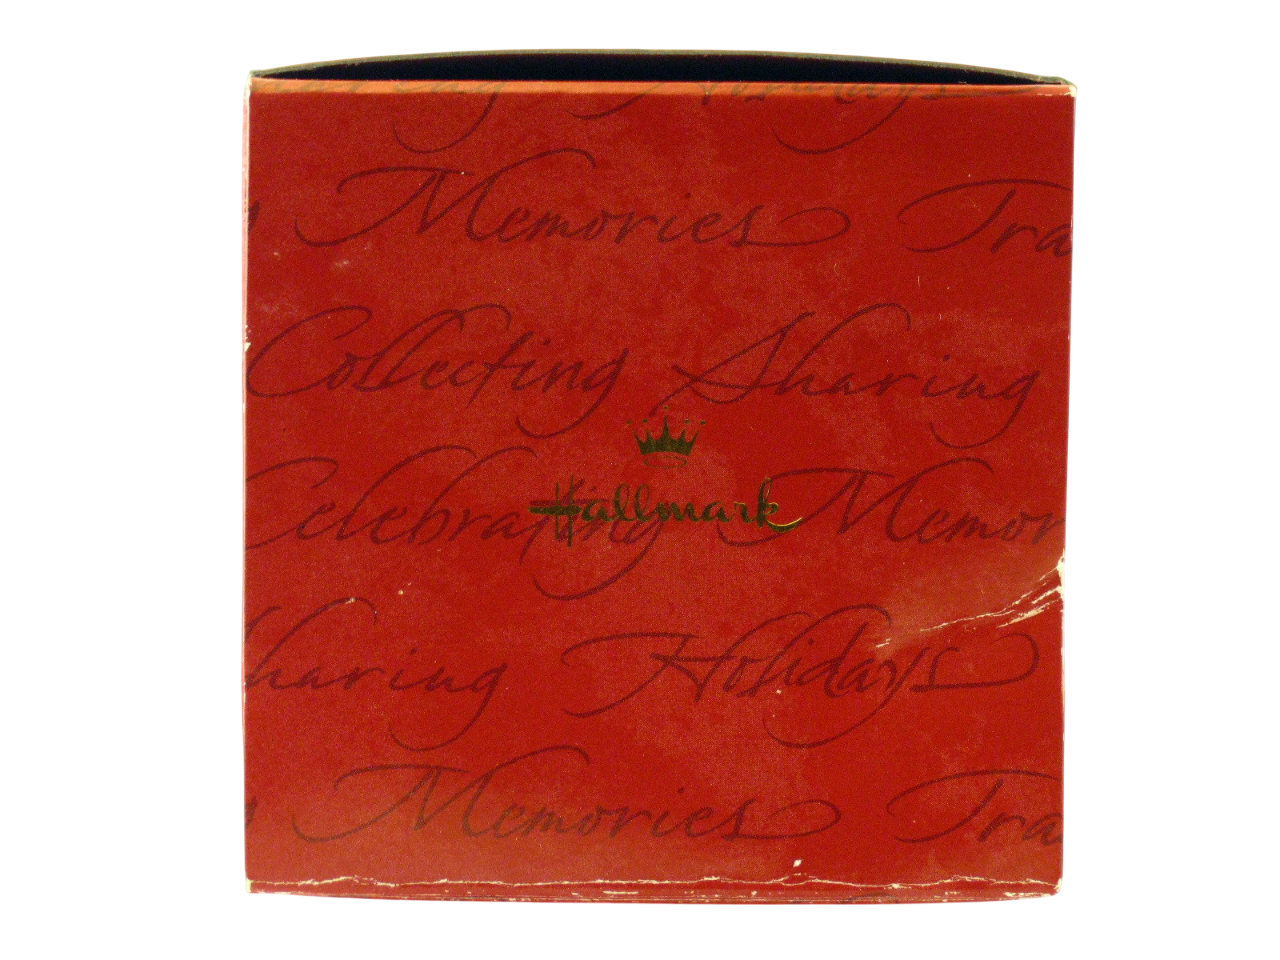 Holidays
Memories Tra
Collecting Sharing
Hallmark
Celebrating Memor
haring Holidays
Memories Tra